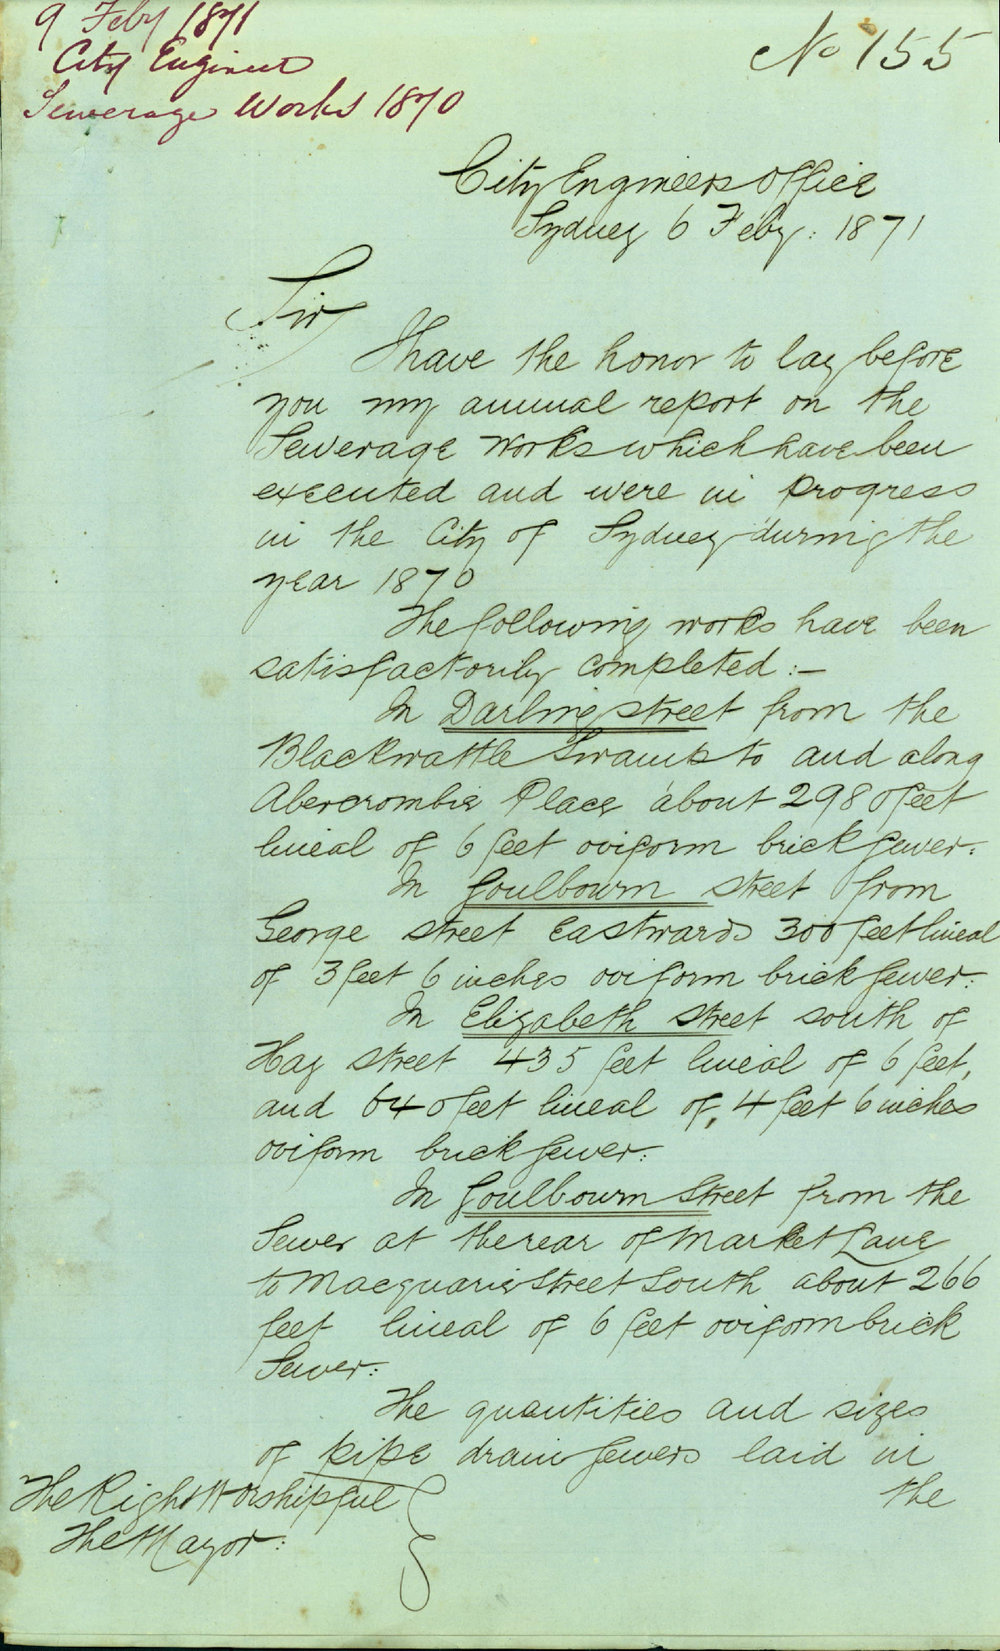 9 Feby 1871
City Engineer
Sewerage Works 1870
No 155
City Engineers Office
Sydney 6 Feby: 1871
Sir
I have the honor to lay before
you my annual report on the
Sewerage works which have been
executed and were in progress
in the City of Sydney during the
year 1870
The following works have been
satisfactorily completed:—
In Darling street from the
Blackwattle Swamp to and along
Abercrombie Place about 2980 feet
lineal of 6 feet oviform brick sewer.
In Goulbourn street from
George street Eastwards 300 feet lineal
of 3 feet 6 inches oviform brick sewer.
In Elizabeth street south of
Hay street 435 feet lineal of 6 feet,
and 640 feet lineal of, 4 feet 6 inches
oviform brick sewer:
In Goulbourn Street from the
Sewer at the rear of Market Lane
to Macquarie Street South about 266
feet lineal of 6 feet oviform brick
Sewer:
The quantities and sizes
of pipe drain sewers laid in
the
The Right Worshipful
The Mayor: